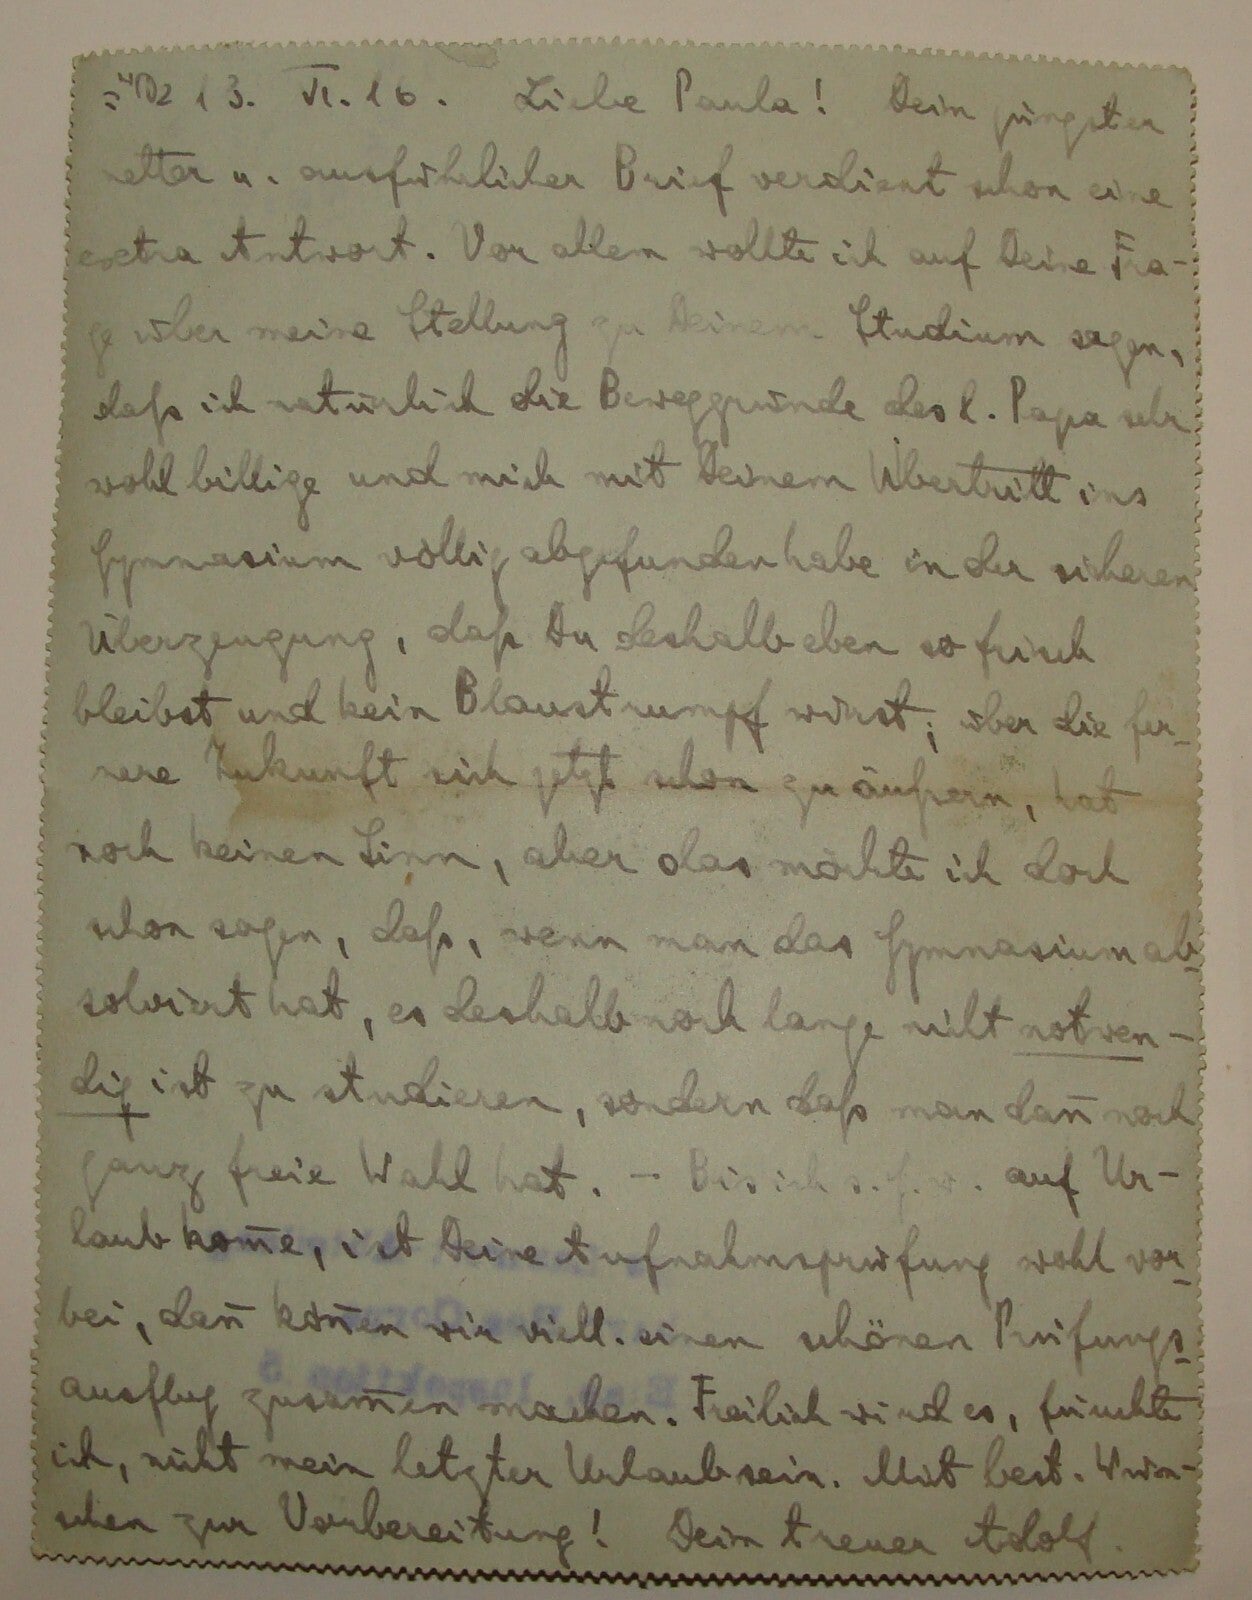 13. VI. 16. Liebe Paula! Dein jüngster
netter u. ausführlicher Brief verdient schon eine
extra Antwort. Vor allem wollte ich auf Deine Fra-
ge über meine Stellung zu Deinem Studium sagen,
daß ich natürlich die Beweggründe des l. Papa sehr
wohl billige und mich mit Deinem Übertritt ins
Gymnasium völlig abgefunden habe in der sicheren
Überzeugung, daß Du deshalb eben so frisch
bleibst und kein Blaustrumpf wirst; über die fer-
nere Zukunft sich jetzt schon zu äußern, hat
noch keinen Sinn, aber das möchte ich doch
schon sagen, daß, wenn man das Gymnasium ab-
solviert hat, es deshalb noch lange nicht notwen-
dig ist zu studieren, sondern daß man dan̄ noch
ganz freie Wahl hat. – Bis ich s. f. w. auf Ur-
laub kom̄e, ist Deine Aufnahmsprüfung wohl vor-
bei, dan̄ kön̄en wir viell. einen schönen Prüfungs-
ausflug zusam̄en machen. Freilich wird es, fürchte
ich, nicht mein letzter Urlaub sein. Mit best. Wün-
schen zur Vorbereitung! Dein treuer Adolf.